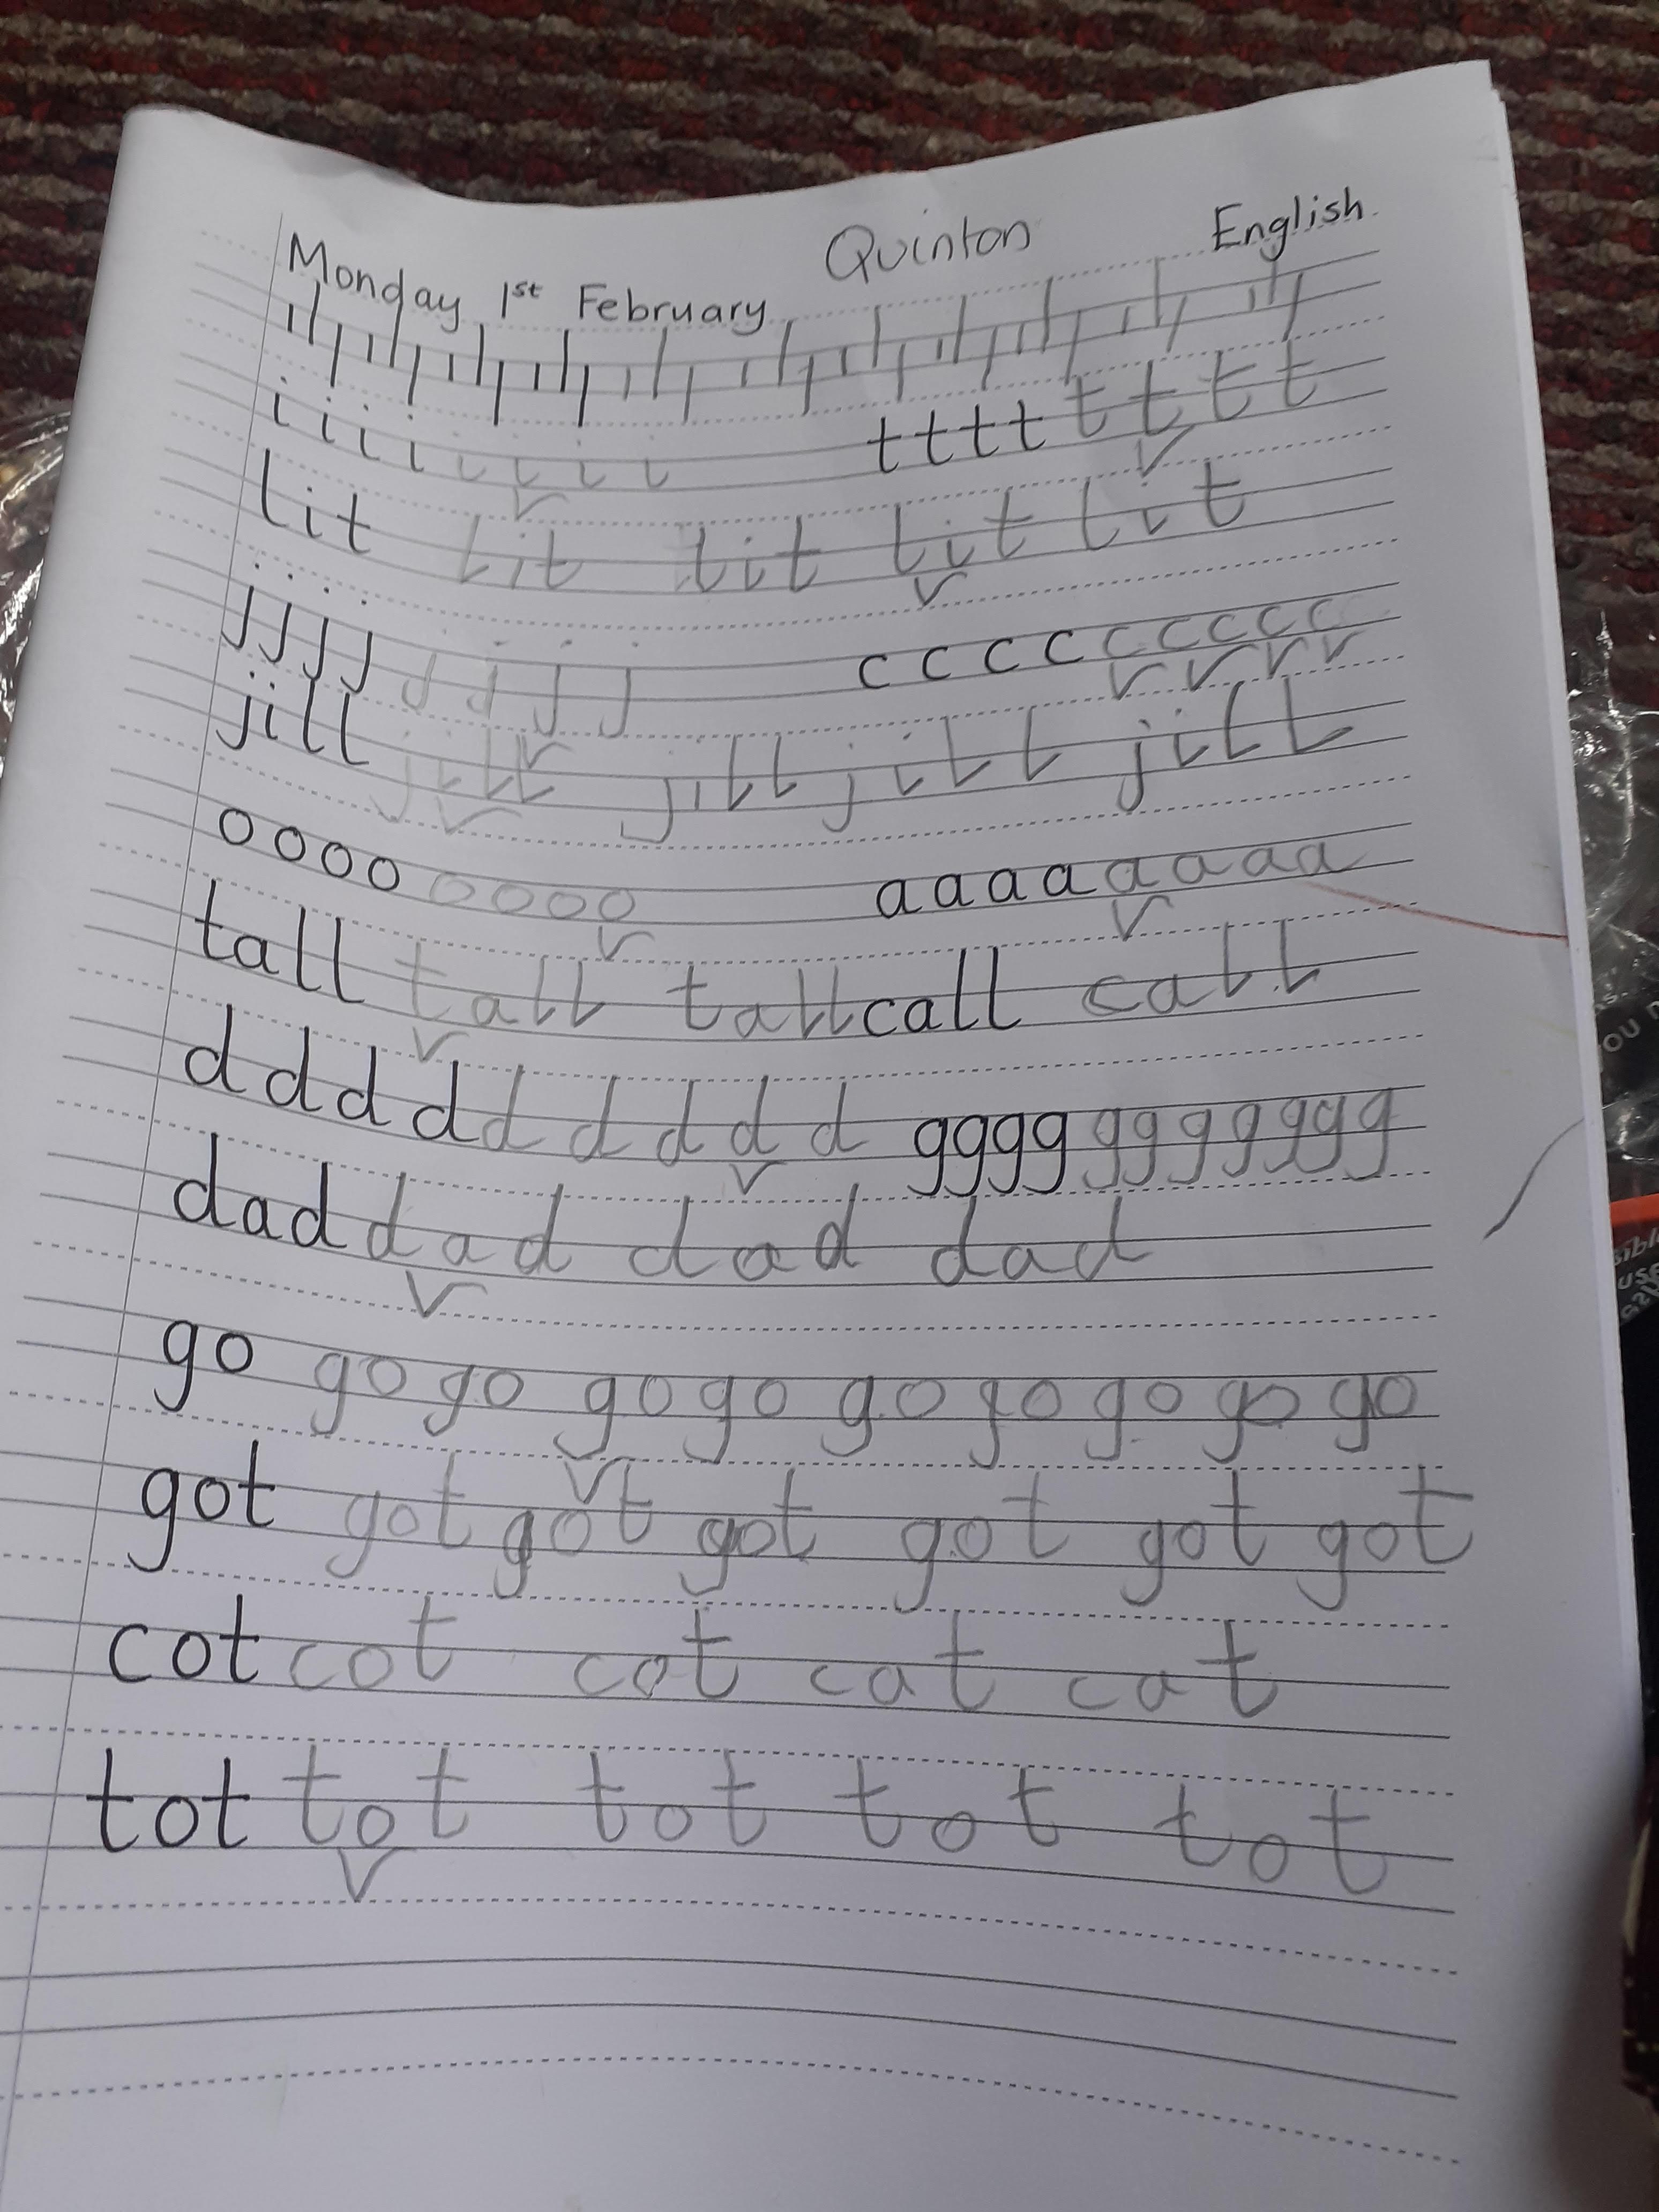 Monday 1st February Quinton English
i i i i i i i i t t t t t t t t
lit lit lit lit lit
j j j j j j j j c c c c c c c c c
jill jill jill jill jill
o o o o o o o o a a a a a a a a
tall tall tall call call
d d d d d d d d d g g g g g g g g g g g
dad dad dad dad
go go go go go go go go go go
got got got got got got got
cot cot cot cat cat
tot tot tot tot tot